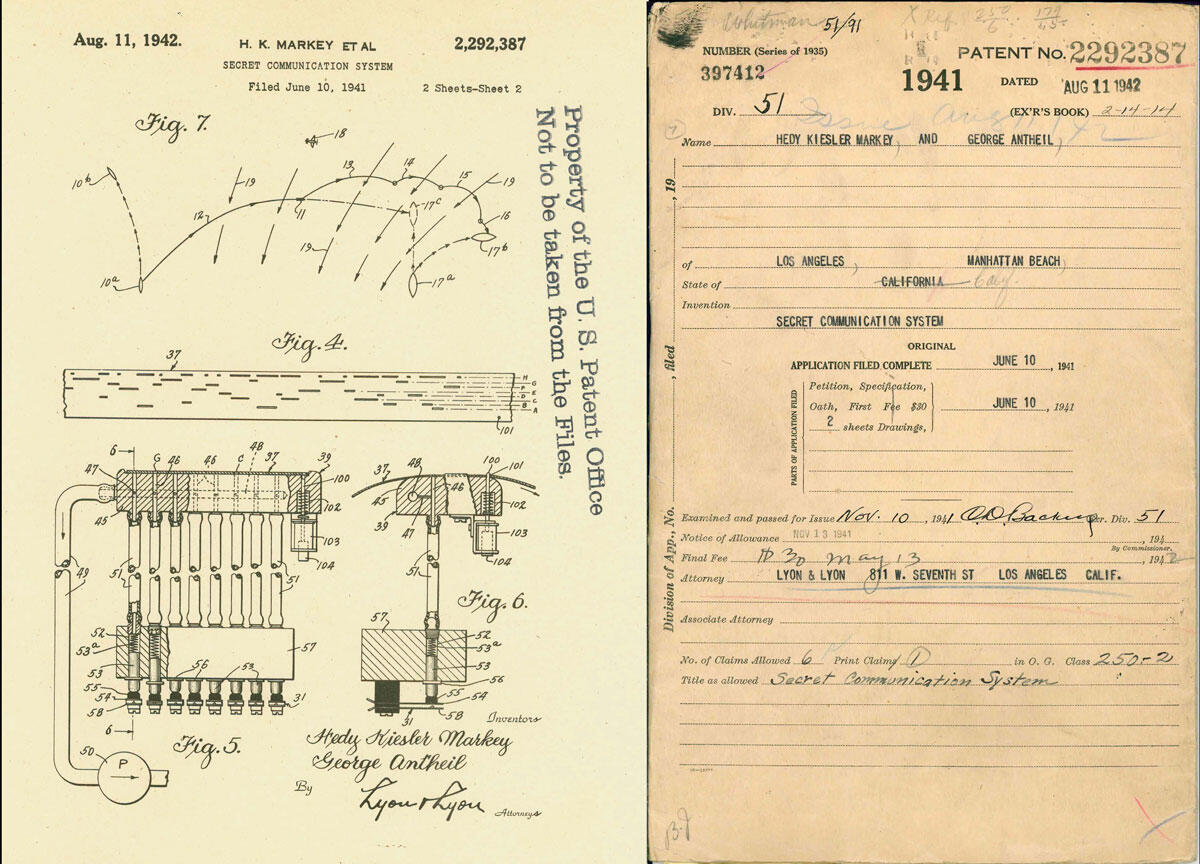 Aug. 11, 1942.
H. K. MARKEY ET AL
2,292,387
SECRET COMMUNICATION SYSTEM
Filed June 10, 1941
2 Sheets-Sheet 2
Property of the U. S. Patent Office
Not to be taken from the Files.
Fig. 7.
18
10b
19
13
14
15
19
12
11
17c
16
19
17b
10a
17a
Fig. 4.
37
H
G
F
E
D
C
B
A
101
6
G
46
46
C
48
37
39
47
100
102
45
103
104
49
51
51
52
53a
53
55
54
58
56
53
57
31
6
50
P
Fig. 5.
37
48
46
100
101
45
102
39
47
103
104
51
Fig. 6.
57
52
53a
53
56
55
54
58
31
Inventors
Hedy Kiesler Markey
George Antheil
By
Lyon & Lyon
Attorneys
Whitman 51/91
X Ref
NUMBER (Series of 1935)
397412
1941
PATENT No. 2292387
DATED AUG 11 1942
DIV. 51
(EX'R'S BOOK) 2-14-14
Issue Aug
Name HEDY KIESLER MARKEY, AND GEORGE ANTHEIL,
of LOS ANGELES, MANHATTAN BEACH,
State of CALIFORNIA
Invention
SECRET COMMUNICATION SYSTEM
ORIGINAL
APPLICATION FILED COMPLETE JUNE 10, 1941
PARTS OF APPLICATION FILED
Petition, Specification,
Oath, First Fee $30 JUNE 10, 1941
2 sheets Drawings,
Examined and passed for Issue Nov. 10, 1941 Div. 51
Notice of Allowance NOV 13 1941, 194
By Commissioner.
Final Fee $30 May 13, 1942
Attorney LYON & LYON 811 W. SEVENTH ST LOS ANGELES CALIF.
Associate Attorney
No. of Claims Allowed 6 Print Claim 1 in O. G. Class 250-2
Title as allowed Secret Communication System
Division of App., No. , filed , 19